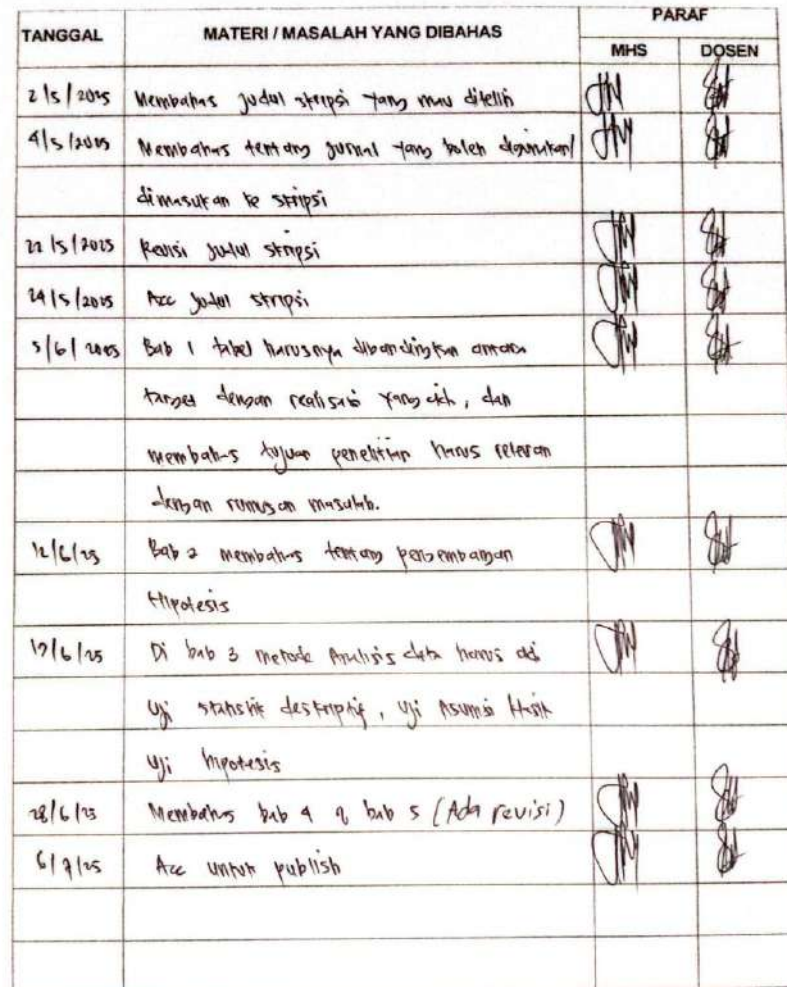 TANGGAL MATERI / MASALAH YANG DIBAHAS PARAF
MHS DOSEN
2/5/2025 Membahas judul skripsi yang mau diteliti
4/5/2025 Membahas tentang jurnal yang boleh digunakan/
dimasukan ke skripsi
22/5/2025 Revisi judul skripsi
24/5/2025 Acc judul skripsi
5/6/2025 Bab 1 tabel harusnya dibandingkan antara
target dengan realisasi yang, dan
membahas tujuan penelitian harus relevan
dengan rumusan masalah.
12/6/25 Bab 2 membahas tentang pengembangan
Hipotesis
/6/25 Di bab 3 metode Analisis data harus ada
Uji statistik deskriptif, Uji Asumsi klasik
Uji hipotesis
28/6/25 Membahas bab 4 & bab 5 (Ada revisi)
6/7/25 Acc untuk publish